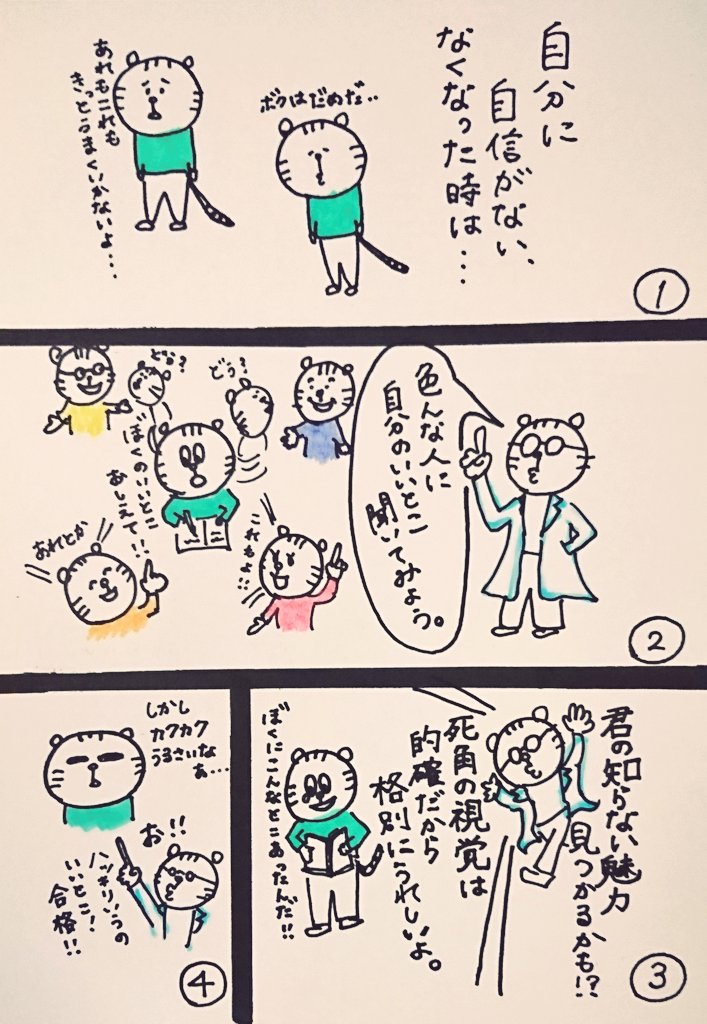 自分に
自信がない、
なくなった時は…
ボクはだめだ…
あれもこれも
きっとうまくいかないよ…
①
色んな人に
自分のいいとこ
聞いてみよう。
どう？
どう？
ぼくのいいとこ
おしえて!!
あれとか
これもよ!!
②
君の知らない魅力
見つかるかも!?
死角の視覚は
的確だから
格別にうれしいよ。
ぼくにこんなとこあったんだ!!
③
しかし
カクカク
うるさいな
ぁ…
お!!
ハッキリいうの
いいとこ！
合格!!
④